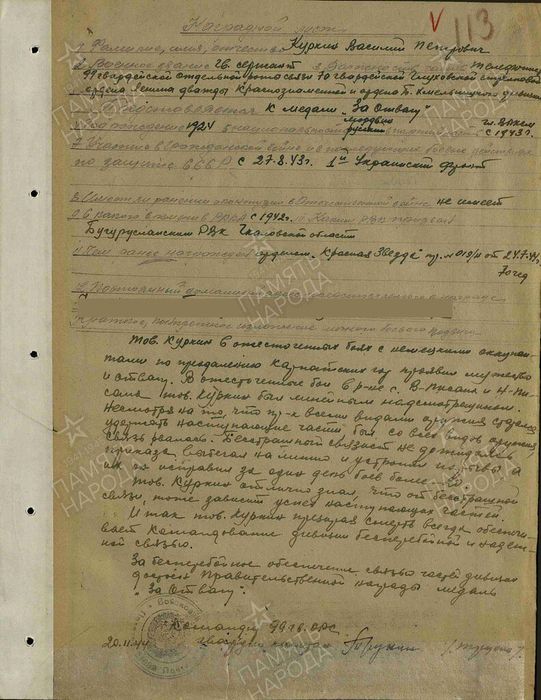 V 113
Наградной лист
1. Фамилия, имя, отчество Куркин Василий Петрович
2. Военное звание гв. сержант 3. Должность, часть телефонист
99 гвардейской отдельной роты связи 70 гвардейской Глуховской стрелковой
ордена Ленина дважды Краснознаменной и ордена Б. Хмельницкого дивизии
Представляется к медали „За Отвагу"
5. Год рождения 1924 6. национальность мордвин русский 7. партийность чл. ВЛКСМ с 1943г.
7. Участие в гражданской войне и последующих боевых действиях
по защите СССР с 27.8.43г. 1й Украинский фронт
8. Имеет ли ранения и контузии в Отечественной войне не имеет
9. С какого времени в РККА с 1942г. 10. Каким РВК призван
Бугурусланским РВК Чкаловской области
11. Чем ранее награжден орденом „Красная Звезда" пр. № 018/н от 24.7.44г.
70 гсд
12. Постоянный домашний адрес
Краткое, конкретное изложение личного боевого подвига
Тов. Куркин в ожесточенных боях с немецкими оккупан-
тами по преодолению Карпатских гор проявил мужество
и отвагу. В ожесточенные бои в р-не с. В-Писана и Н-Пи-
сана тов. Куркин был линейным надсмотрщиком.
Несмотря на то, что пр-к всеми видами оружия старался
удержать наступающие части, бил со всех видов оружия,
связь рвалась. Бесстрашный связист не дожидаясь
приказа, выбегал на линию и устранял порывы, а
их он исправил за один день боев более
Тов. Куркин отлично знал, что от бесстрашной
связи, тоже зависит успех наступающих частей.
И так тов. Куркин презирая смерть всегда обеспечи-
вает командование дивизии бесперебойной и надеж-
ной связью.
За бесперебойное обеспечение связью частей дивизии
достоин Правительственной награды медаль
„За Отвагу".
Командир 99 гв. ОРС
20.11.44 гвардии капитан
ПАМЯТЬ НАРОДА
ПАМЯТЬ НАРОДА
ПАМЯТЬ НАРОДА
ПАМЯТЬ НАРОДА